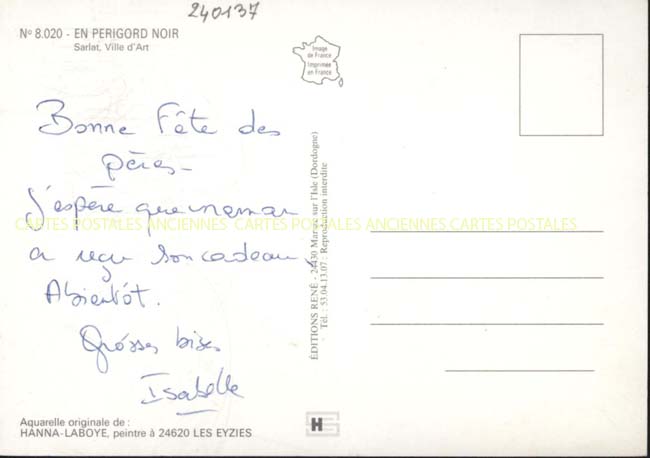 240137
Nº 8.020 - EN PERIGORD NOIR
Sarlat, Ville d'Art
Image
de France
Imprimée
en France
Bonne Fête des
pères-
J'espère que maman
a reçu son cadeau.
A bientôt.
Grosses bises
Isabelle
CARTES POSTALES ANCIENNES CARTES POSTALES ANCIENNES CARTES POSTALES
ÉDITIONS RENÉ - 24430 Marsac sur l'Isle (Dordogne)
Tél. : 53.04.13.07 : Reproduction interdite
Aquarelle originale de :
HANNA-LABOYE, peintre à 24620 LES EYZIES
H